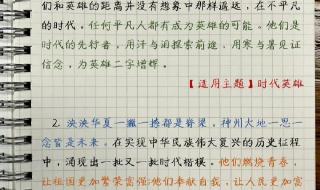 们和英雄的距离并没有想象中那样遥远，在不平凡
的时代。任何平凡人都有成为英雄的可能。他们是
时代的先行者，用汗与泪探索前进，用寒与暑见证
信念，为英雄二字增辉。
【适用主题】时代英雄
2. 泱泱华夏一撇一捺都是脊梁，神州大地一思一
念皆是未来。在实现中华民族伟大复兴的历史征程
中，涌现出一批又一批时代楷模。他们燃烧青春，
让祖国更加繁荣富强；他们奉献自我，让人民更加富